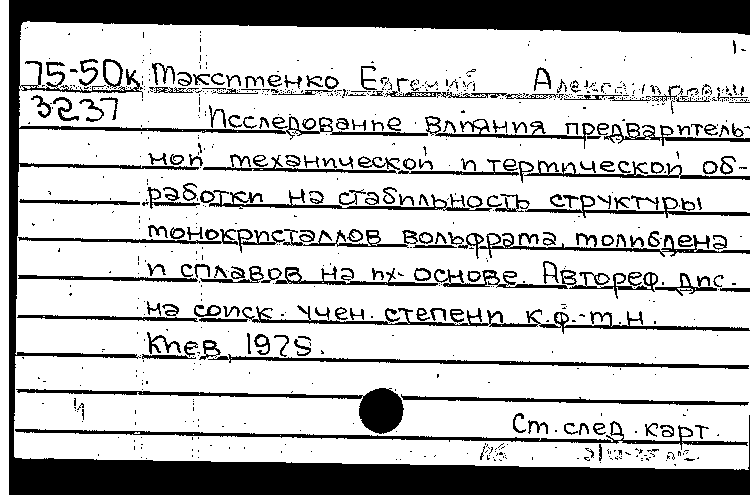 1-
75-50к Максименко Евгений Александрович
3237 Исследование влияния предваритель-
ной механической и термической об-
работки на стабильность структуры
монокристаллов вольфрама, молибдена
и сплавов на их основе. Автореф. дис.
на соиск. учен. степени к.ф.-м.н.
Киев, 1975.
Ст. след. карт.